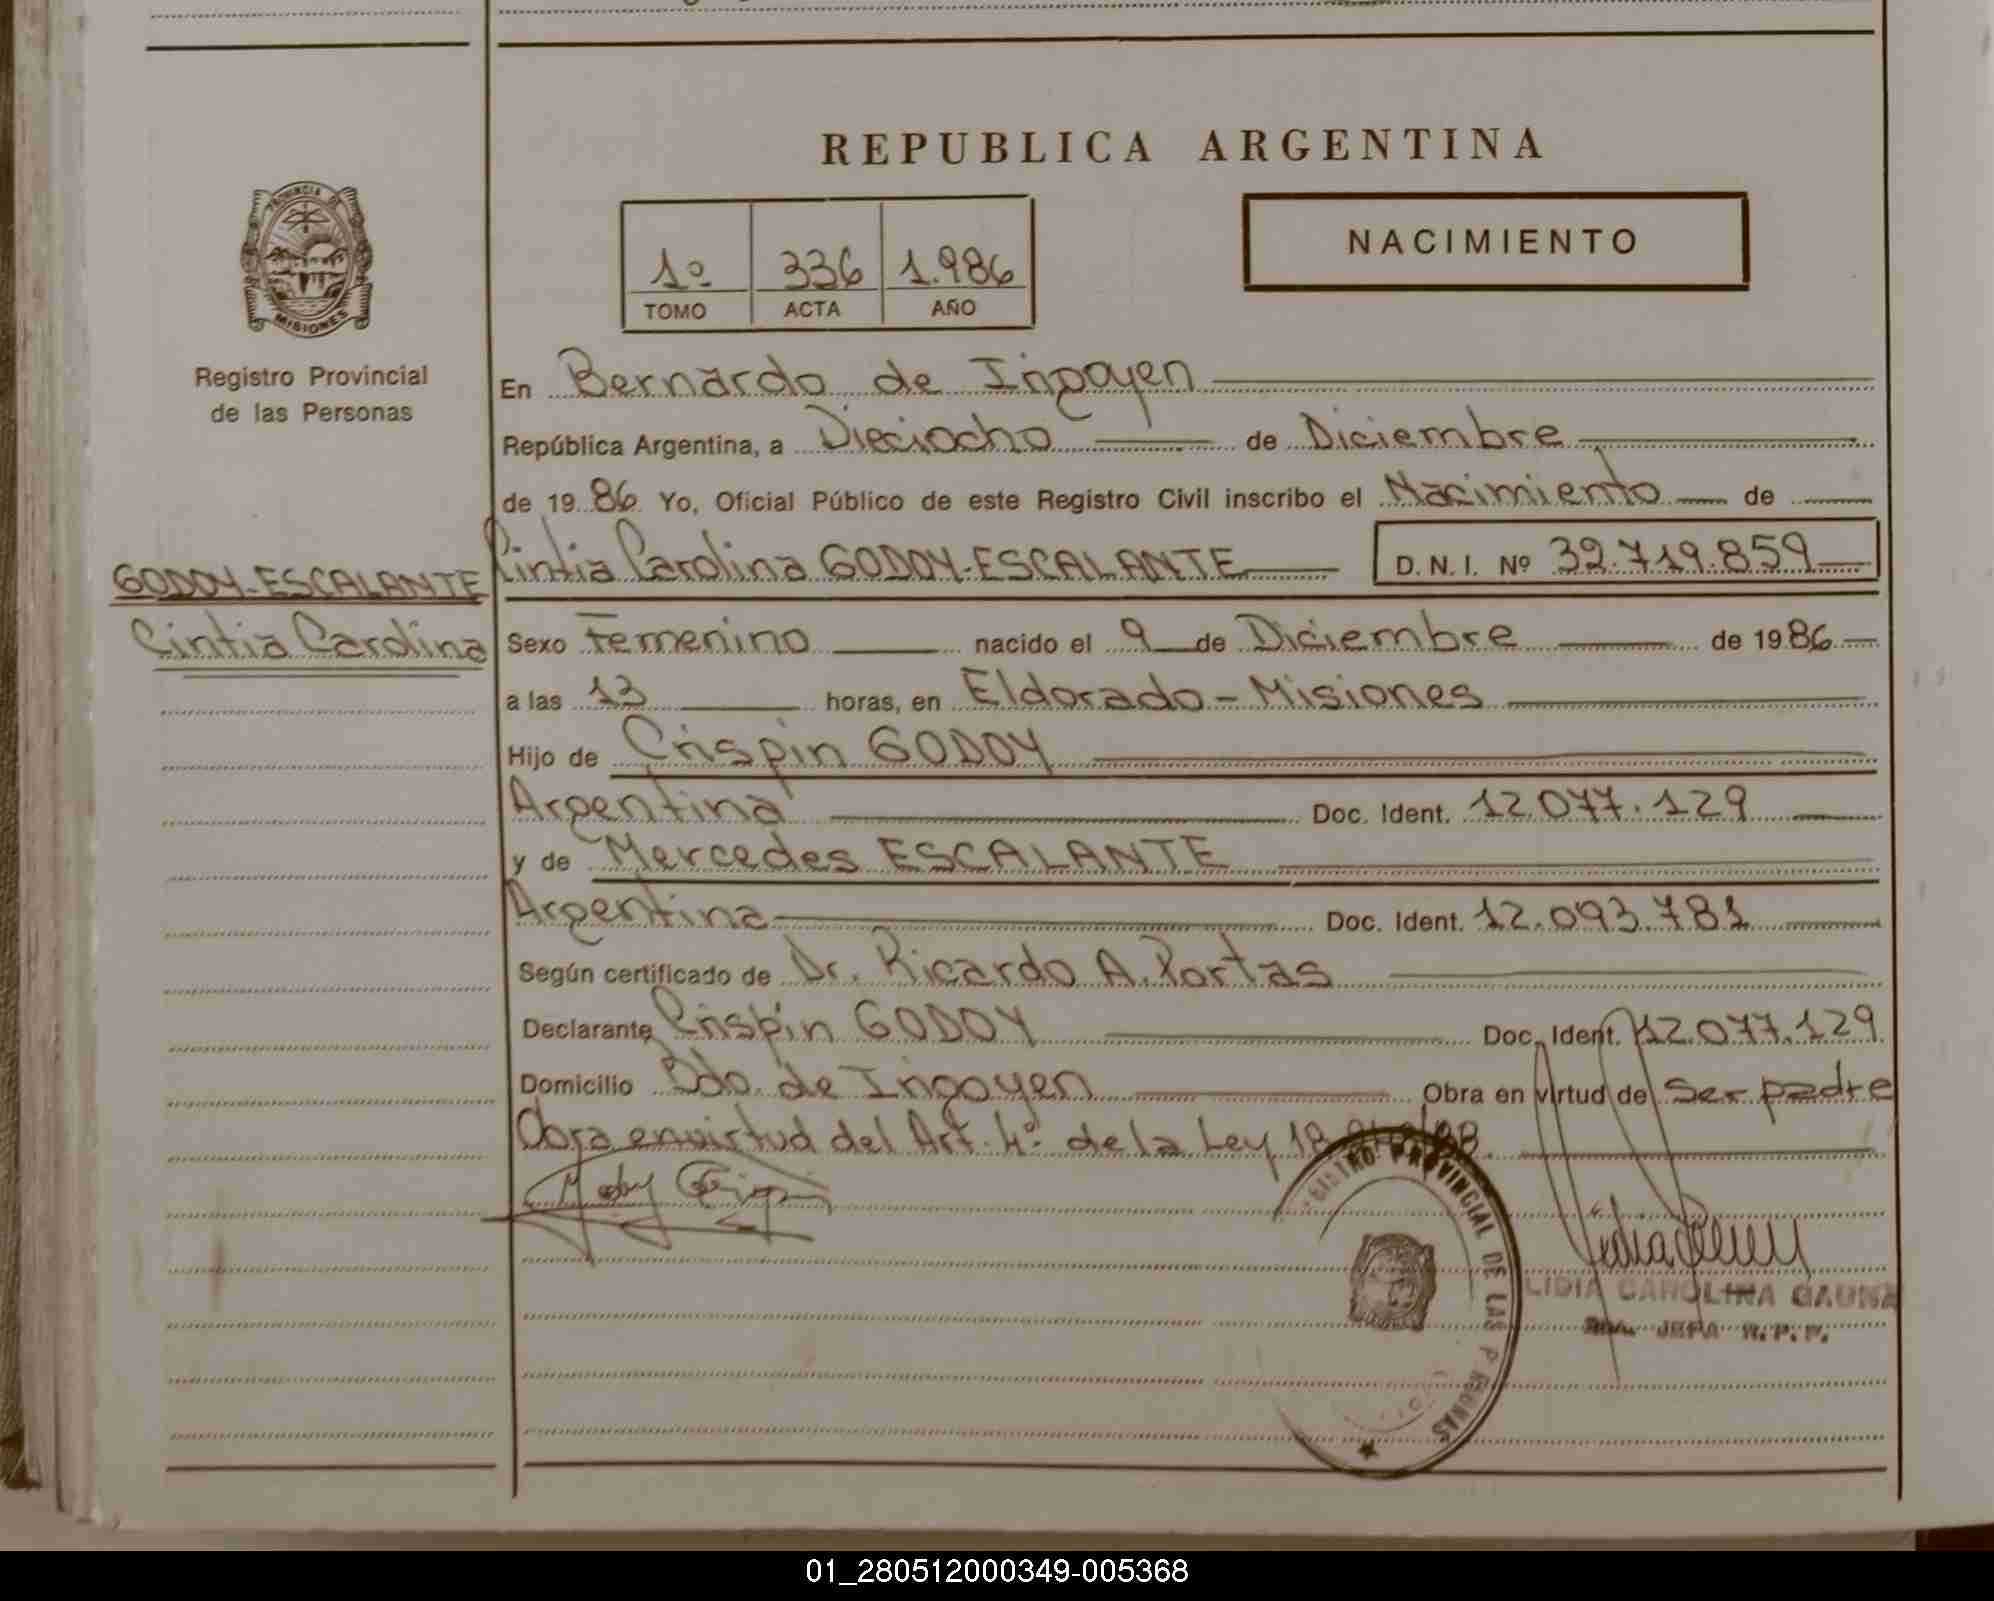 REPUBLICA ARGENTINA
PROVINCIA DE MISIONES
Registro Provincial
de las Personas
1º 336 1.986
TOMO ACTA AÑO
NACIMIENTO
En Bernardo de Irigoyen
República Argentina, a Dieciocho de Diciembre
de 1986 Yo, Oficial Público de este Registro Civil inscribo el Nacimiento de
Cintia Carolina GODOY-ESCALANTE D.N.I. Nº 32.719.859
GODOY-ESCALANTE
Cintia Carolina
Sexo Femenino nacido el 9 de Diciembre de 1986
a las 13 horas, en Eldorado - Misiones
Hijo de Crispin GODOY
Argentina Doc. Ident. 12.077.129
y de Mercedes ESCALANTE
Argentina Doc. Ident. 12.093.781
Según certificado de Dr. Ricardo A. Portas
Declarante Crispin GODOY Doc. Ident. 12.077.129
Domicilio Bdo. de Irigoyen Obra en virtud de ser padre
Obra en virtud del Art. 4º de la Ley 18.
REGISTRO PROVINCIAL DE LAS PERSONAS
LIDIA CAROLINA GAUNA
JEFA R.P.P.
01_280512000349-005368